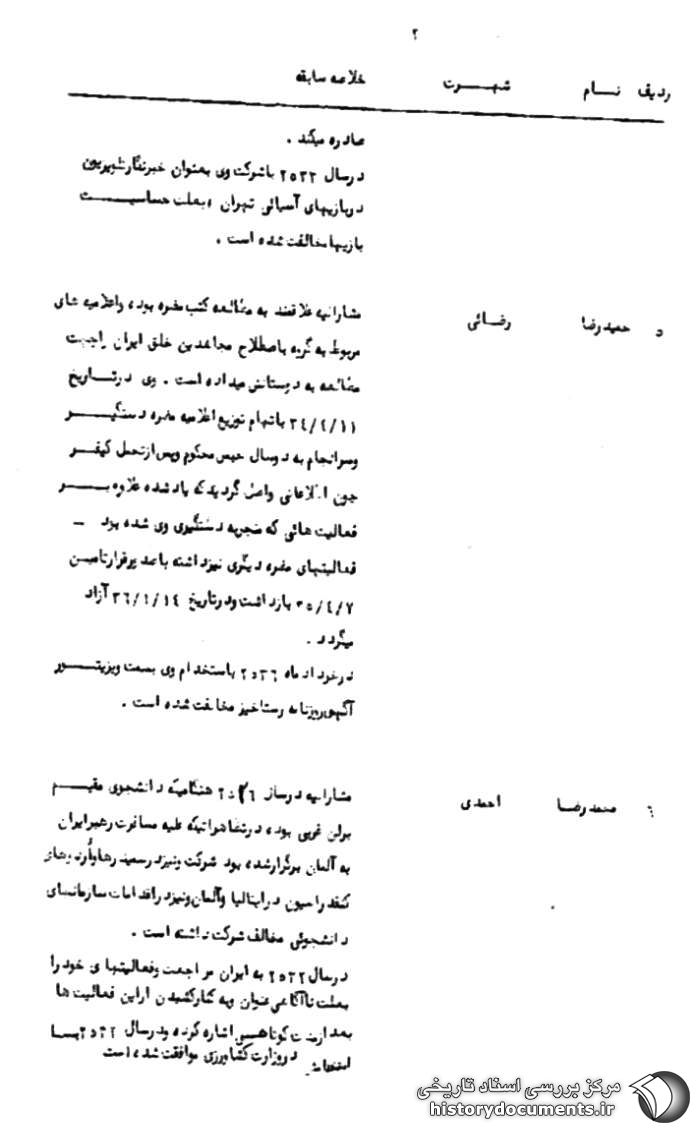 ۲
ردیف نام شهرت خلاصه سابقه
صادره میکند .
درسال ۲۵۳۳ باشرکت وی بعنوان خبرنگارتلویزیون
دربازیهای آسیائی تهران بعلت حساسیت
بازیها مخالفت شده است .
د حمیدرضا رضائی مشارالیه علاقمند به مطالعه کتب مضره بوده واعلامیه های
مربوط به گروه باصطلاح مجاهدین خلق ایران راجهت
مطالعه به دوستانش میداده است . وی درتاریخ
۳٤/٤/۱۱ باتهام توزیع اعلامیه مضره دستگیر
وسرانجام به دوسال حبس محکوم وپس ازتحمل کیفر
چون اطلاعاتی واصل گردیدکه یادشده علاوه بر
فعالیت هائی که منجربه دستگیری وی شده بود -
فعالیتهای مضره دیگری نیزداشته باصدورقرارتامین
۳٥/٤/۷ بازداشت ودرتاریخ ۳٦/۱/۱٤ آزاد
میگردد .
درخرداد ماه ۲٥۳٦ بااستخدام وی بسمت ویزیتور
آگهی روزنامه رستاخیز مخالفت شده است .
٦ محمدرضا احمدی مشارالیه درسال هنگامیکه دانشجوی مقیم
برلن غربی بوده درتظاهراتیکه علیه مسافرت رهبرایران
به آلمان برگزارشده بود شرکت ونیزدر
کنفدراسیون درایتالیا وآلمان ونیزدراقدامات سازمانهای
دانشجوئی مخالف شرکت داشته است .
درسال ۲٥۳۳ به ایران مراجعت وفعالیتهای خودرا
بعلت ناآگاهی عنوان وبه کنارکشیدن ازاین فعالیت ها
بعدازمدت کوتاهی اشاره کرده ودرسال با
استخدامش دروزارت کشاورزی موافقت شده است
مرکز بررسی اسناد تاریخی
historydocuments.ir